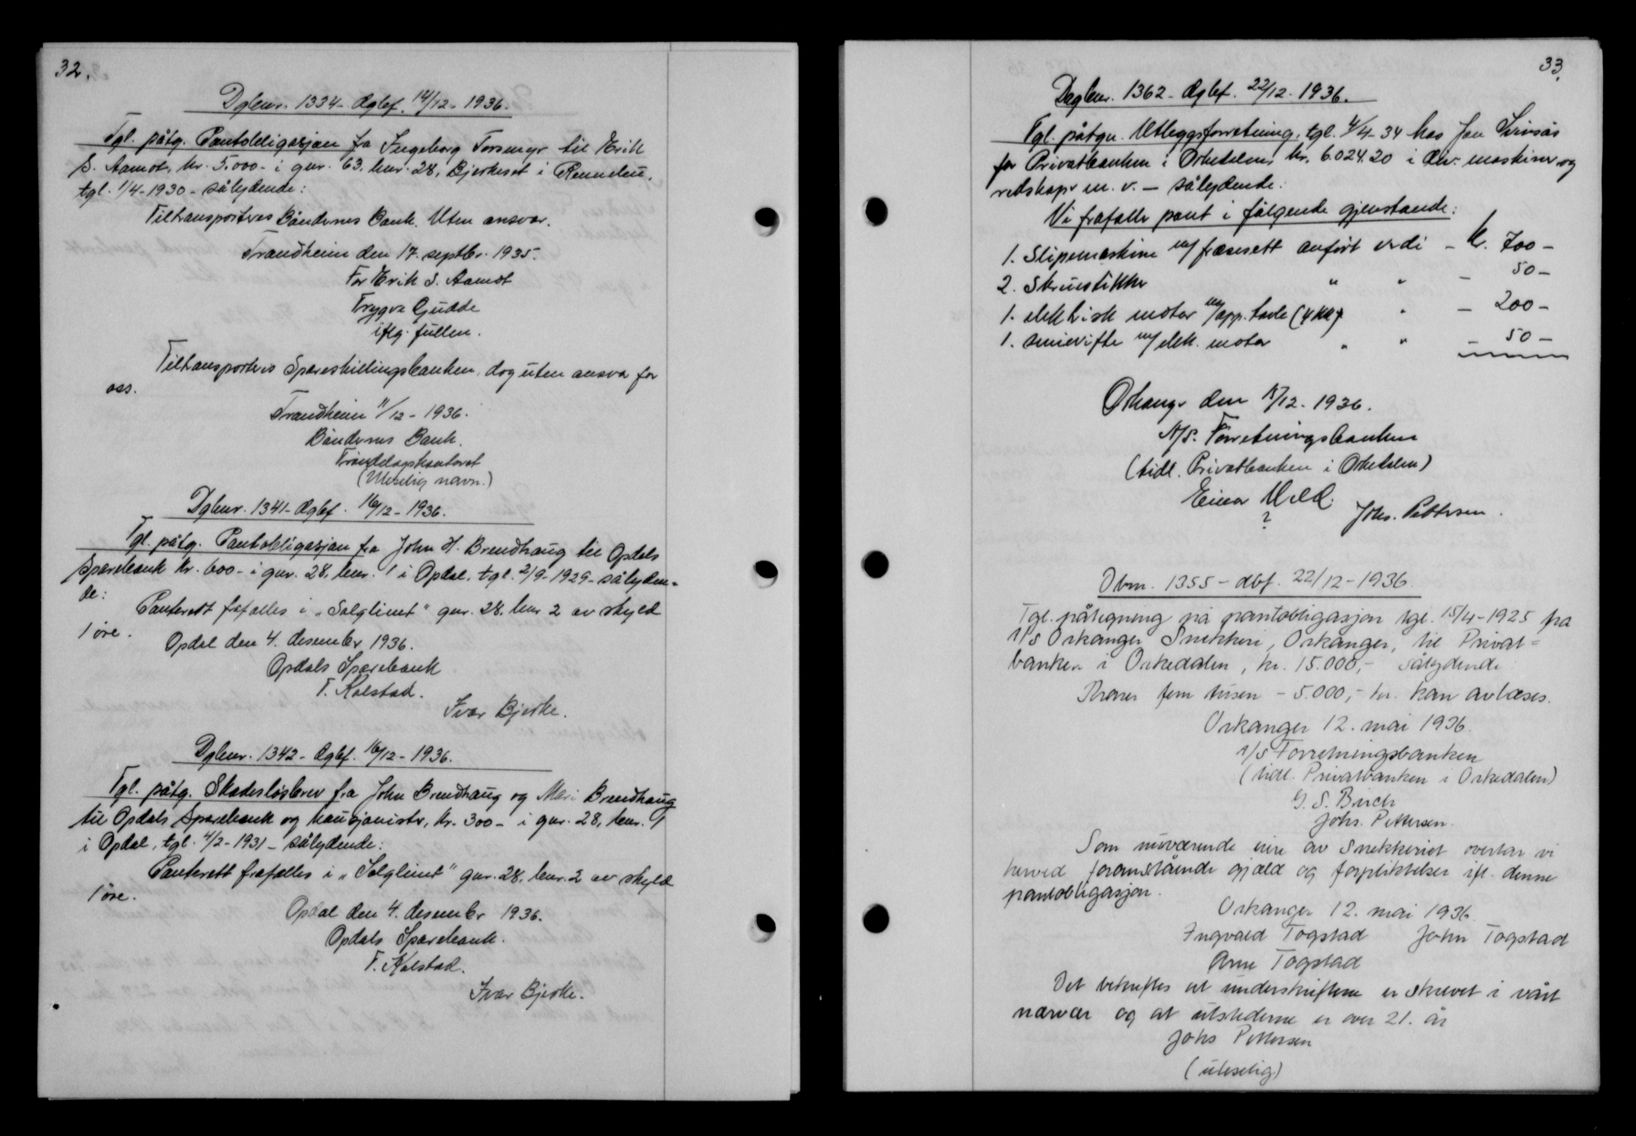 32.
Dgbnr. 1334 - dgbf. 14/12 - 1936.
Tgl. påtg. Pantobligasjon fra Ingeborg Forsmyr til Erik
S. Aamot, kr. 5.000 - i gnr. 63, bnr. 28, Bjerkeset i Rennebu,
tgl. 1/4 - 1930 - sålydende:
Tiltransporteres Bøndernes Bank. Uten ansvar.
Trondheim den 17. septbr. 1935.
For Erik S. Aamot
Trygve Gjudde
iflg. fullm.
Tiltransporteres Spareskillingsbanken, dog uten ansvar for
oss.
Trondheim 11/12 - 1936.
Bøndernes Bank.
Trøndelagskontoret
(Uleselig navn.)
Dgbnr. 1341 - dgbf. 16/12 - 1936.
Tgl. påtg. Pantobligasjon fra John H. Brendhaug til Opdals
Sparebank kr. 600 - i gnr. 28, bnr. 1 i Opdal, tgl. 2/9 - 1929 - sålyden-
de:
Panterett frafalles i "Solglimt" gnr. 28. bnr 2 av skyld
1 øre.
Opdal den 4. desember 1936.
Opdals Sparebank
T. Kolstad.
Ivar Bjerke.
Dgbnr. 1342 - dgbf. 16/12 - 1936.
Tgl. påtg. Skadesløsbrev fra John Brendhaug og Mari Brendhaug
til Opdals Sparebank og kausjonister, kr. 300 - i gnr. 28, bnr. 1
i Opdal, tgl. 4/2 - 1931 - sålydende:
Panterett frafalles i "Solglimt" gnr. 28, bnr. 2 av skyld
1 øre.
Opdal den 4. desember 1936.
Opdals Sparebank.
T. Kolstad.
Ivar Bjerke.
33.
Dagbnr. 1362 - dgbf. 22/12. 1936.
Tgl. påtgn. Utleggsforretning, tgl. 4/4 - 34 hos Jon
for Privatbanken i Orkedalen, kr. 6.024.20 i div. maskiner og
redskaper m. v. - sålydende:
Vi frafaller pant i følgende gjenstande:
1. Slipemaskin m/ fræsesett anført verdi - kr. 700 -
2. Skruestikker " " - 50 -
1. elektrisk motor m/ app. tavle (4 ) " - 200 -
1. smievifte m/ elek. motor " " - 50 -
Orkanger den /12. 1936.
A/S. Forretningsbanken
(tidl. Privatbanken i Orkedalen)
Einar
? Johs. Pettersen.
Dbnr. 1355 - dbf. 22/12 - 1936.
Tgl. påtegning på pantobligasjon tgl. 15/4 - 1925 fra
A/S Orkanger Snekkeri, Orkanger, til Privat=
banken i Orkedalen, kr. 15.000,- sålydende:
Kroner fem tusen - 5.000,- kr. kan avlæses.
Orkanger 12. mai 1936.
A/S Forretningsbanken
(tidl. Privatbanken i Orkedalen)
G. S. Birch
Johs. Pettersen.
Som nuværende eiere av Snekkeriet overtar vi
herved foranstående gjæld og forpliktelser ifl. denne
pantobligasjon.
Orkanger 12. mai 1936
Ingvald Togstad John Togstad
Arne Togstad
Det bekreftes at underskriftene er skrevet i vårt
nærvær og at utstederne er over 21. år
Johs Pettersen
(uleselig)